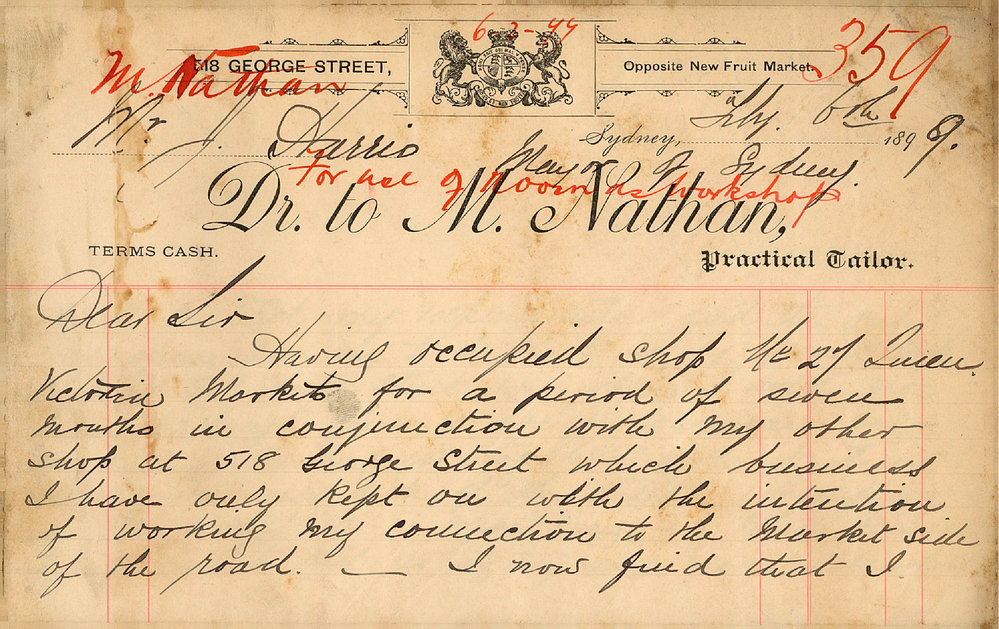 6-2-99
359
M. Nathan
518 GEORGE STREET,
Opposite New Fruit Market.
Sydney, Feby. 6th 1899.
Mr J. Harris Mayor of Sydney.
For use of room as workshop
Dr. to M. Nathan,
TERMS CASH.
Practical Tailor.
Dear Sir
Having occupied shop No 27 Queen
Victoria Markets for a period of seven
months in conjunction with my other
shop at 518 George Street which business
I have only kept on with the intention
of working my connection to the Market side
of the road. — I now find that I